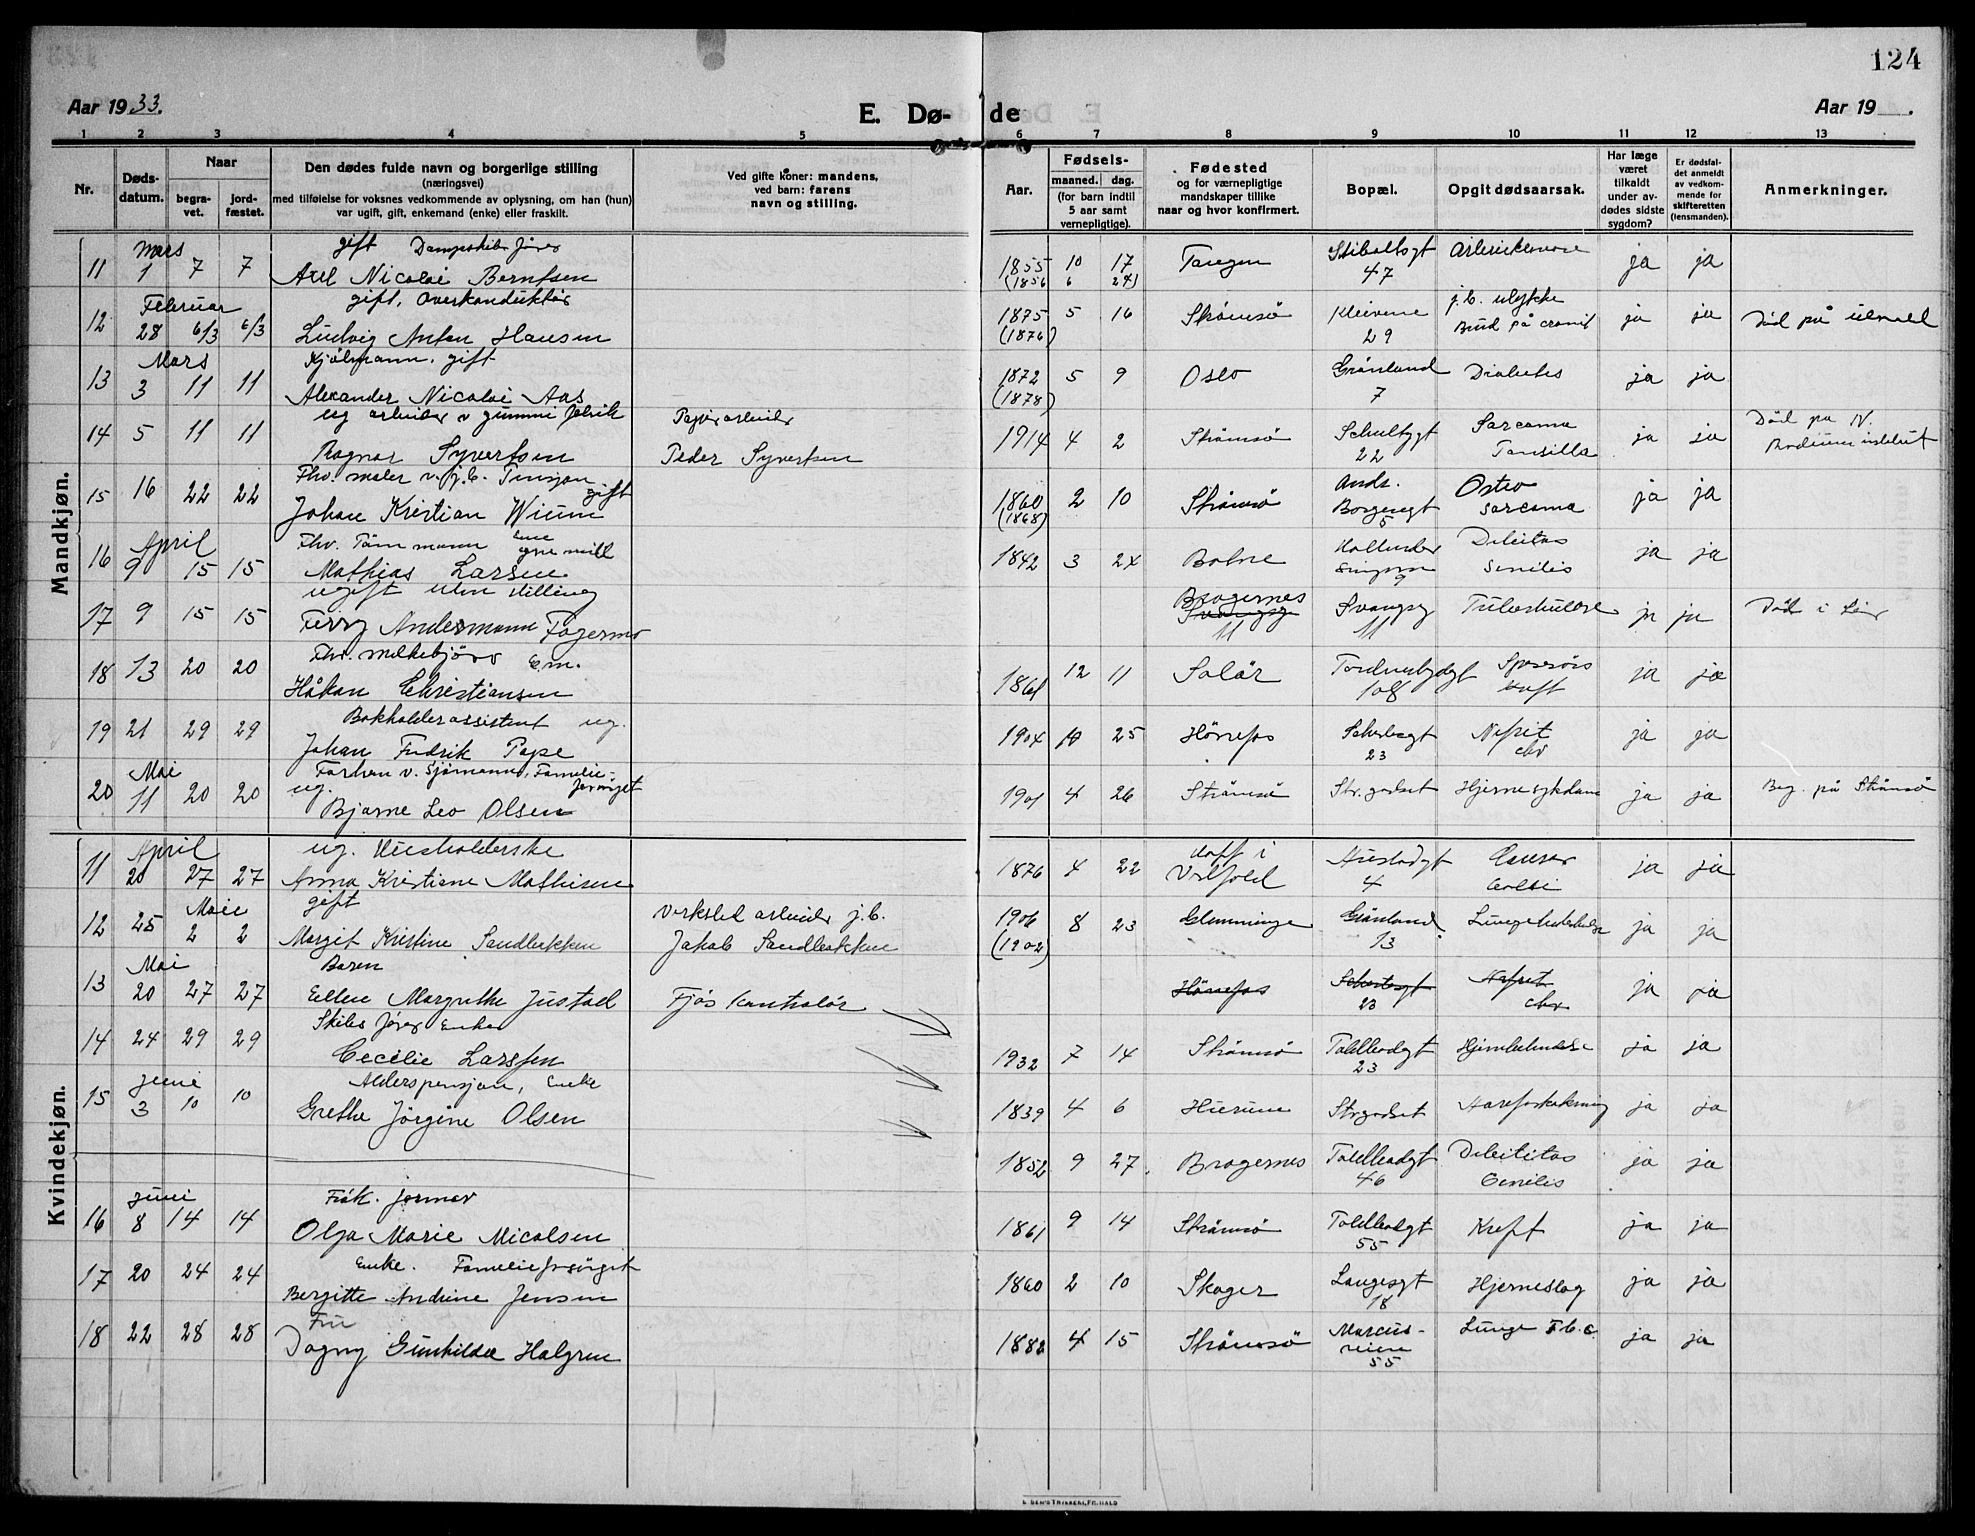 124
Aar 1933.
E. Dø-
de
Aar 19 .
1 2 3 4 5 6 7 8 9 10 11 12 13
Nr.
Døds-
datum.
Naar
begra-
vet.
jord-
fæstet.
Den dødes fulde navn og borgerlige stilling
(næringsvei)
med tilføielse for voksnes vedkommende av oplysning, om han (hun)
var ugift, gift, enkemand (enke) eller fraskilt.
Ved gifte koner: mandens,
ved barn: farens
navn og stilling.
Aar.
Fødsels-
maaned. dag.
(for barn indtil
5 aar samt
vernepligtige).
Fødested
og for værnepligtige
mandskaper tillike
naar og hvor konfirmert.
Bopæl.
Opgit dødsaarsak.
Har læge
været
tilkaldt
under av-
dødes sidste
sygdom?
Er dødsfal-
det anmeldt
av vedkom-
mende for
skifteretten
(lensmanden).
Anmerkninger.
Mandkjøn.
Mars gift Dampskibsfører
11 1 7 7 Axel Nicolai Berntsen 1855 10 17 Tangen Stiboltsgt ja ja
(1856 6 24) 47
Februar gift, Overkonduktør
12 28 6/3 6/3 Ludvig Anton Hansen 1875 5 16 Strømsø Kleivene j.b. ulykke ja ja
(1876) 29 Brud på cranii
Mars Kjølmann. gift
13 3 11 11 Alexander Nicolai Aas 1872 5 9 Oslo Grønland Diabetes ja ja
(1878) 7
ug arbeider v gummi fabrik Papirarbeider
14 5 11 11 Ragnar Syvertsen Peder Syvertsen 1914 4 2 Strømsø Schultzgt Sarcoma ja ja Død på N.
22 Tonsilla Radiuminstitut
Fhv. maler v. j.b. Pensjon gift
15 16 22 22 Johan Kristian Wium 1860 2 10 Strømsø Ands. Osteo ja ja
(1868) Borgengt sarcoma
5
April Fhv. Tømmermann
16 9 15 15 Mathias Larsen 1842 3 24 Botne Debilitas ja ja
9 Senilis
ugift uten stilling
17 9 15 15 Ferry Andermann Fagermo Bragernes Svangsg Tuberkulose ja ja Død i Lier
Svangsg 11
11
Fhv. melkekjører Em.
18 13 20 20 Håkan Christiansen 1861 12 11 Solør Tordenskjoldgt Spiserørs ja ja
108 kreft
Bokholderassistent ug.
19 21 29 29 Johan Fredrik Pape 1904 10 25 Hønefos Schultzgt Nefrit ja ja
23 chr
Mai Forhen v. Sjømann, Familie-
ug. forsørget
20 11 20 20 Bjarne Leo Olsen 1901 4 26 Strømsø Str.godset Hjernesykdom ja ja Beg. på Strømsø
Kvindekjøn.
April ug. Husholderske
11 20 27 27 Anna Kristiane Mathisen 1876 4 22 Hoff i Havstadgt Cancer ja ja
Vestfold 4 Colli
Mai gift Verksted arbeider j.b.
12 25 2 2 Margit Kristine Sandbakken Jakob Sandbakken 1906 8 23 Glemminge Grønland Lungetuberkulose ja ja
(1902) 13
Mai Baren
13 20 27 27 Ellen Margrethe Justad Fjøs kontrolør Hønefos Schultzgt Nefrit ja ja
23 chr
Skibsfører Enke
14 24 29 29 Cecilie Larssen 1932 7 14 Strømsø Toldbodgt ja ja
23
Juni Alderspensjon, Enke
15 3 10 10 Grethe Jørgine Olsen 1839 4 6 Hurum Strgodset Åreforkalkning ja ja
1852 9 27 Bragernes Toldbodgt Debilitas ja ja
46 Senilis
Juni Frk. jormor
16 8 14 14 Olga Marie Nicolsen 1861 9 14 Strømsø Toldbodgt Kreft ja ja
55
Enke. Familieforsørget
17 20 24 24 Bergitte Andrine Jensen 1860 2 10 Skoger Langesgt Hjerneslag ja ja
18
Fru
18 22 28 28 Dagny Gunhilda Halgren 1882 4 15 Strømsø Marcus- Lunge Tbc. ja ja
veien
55